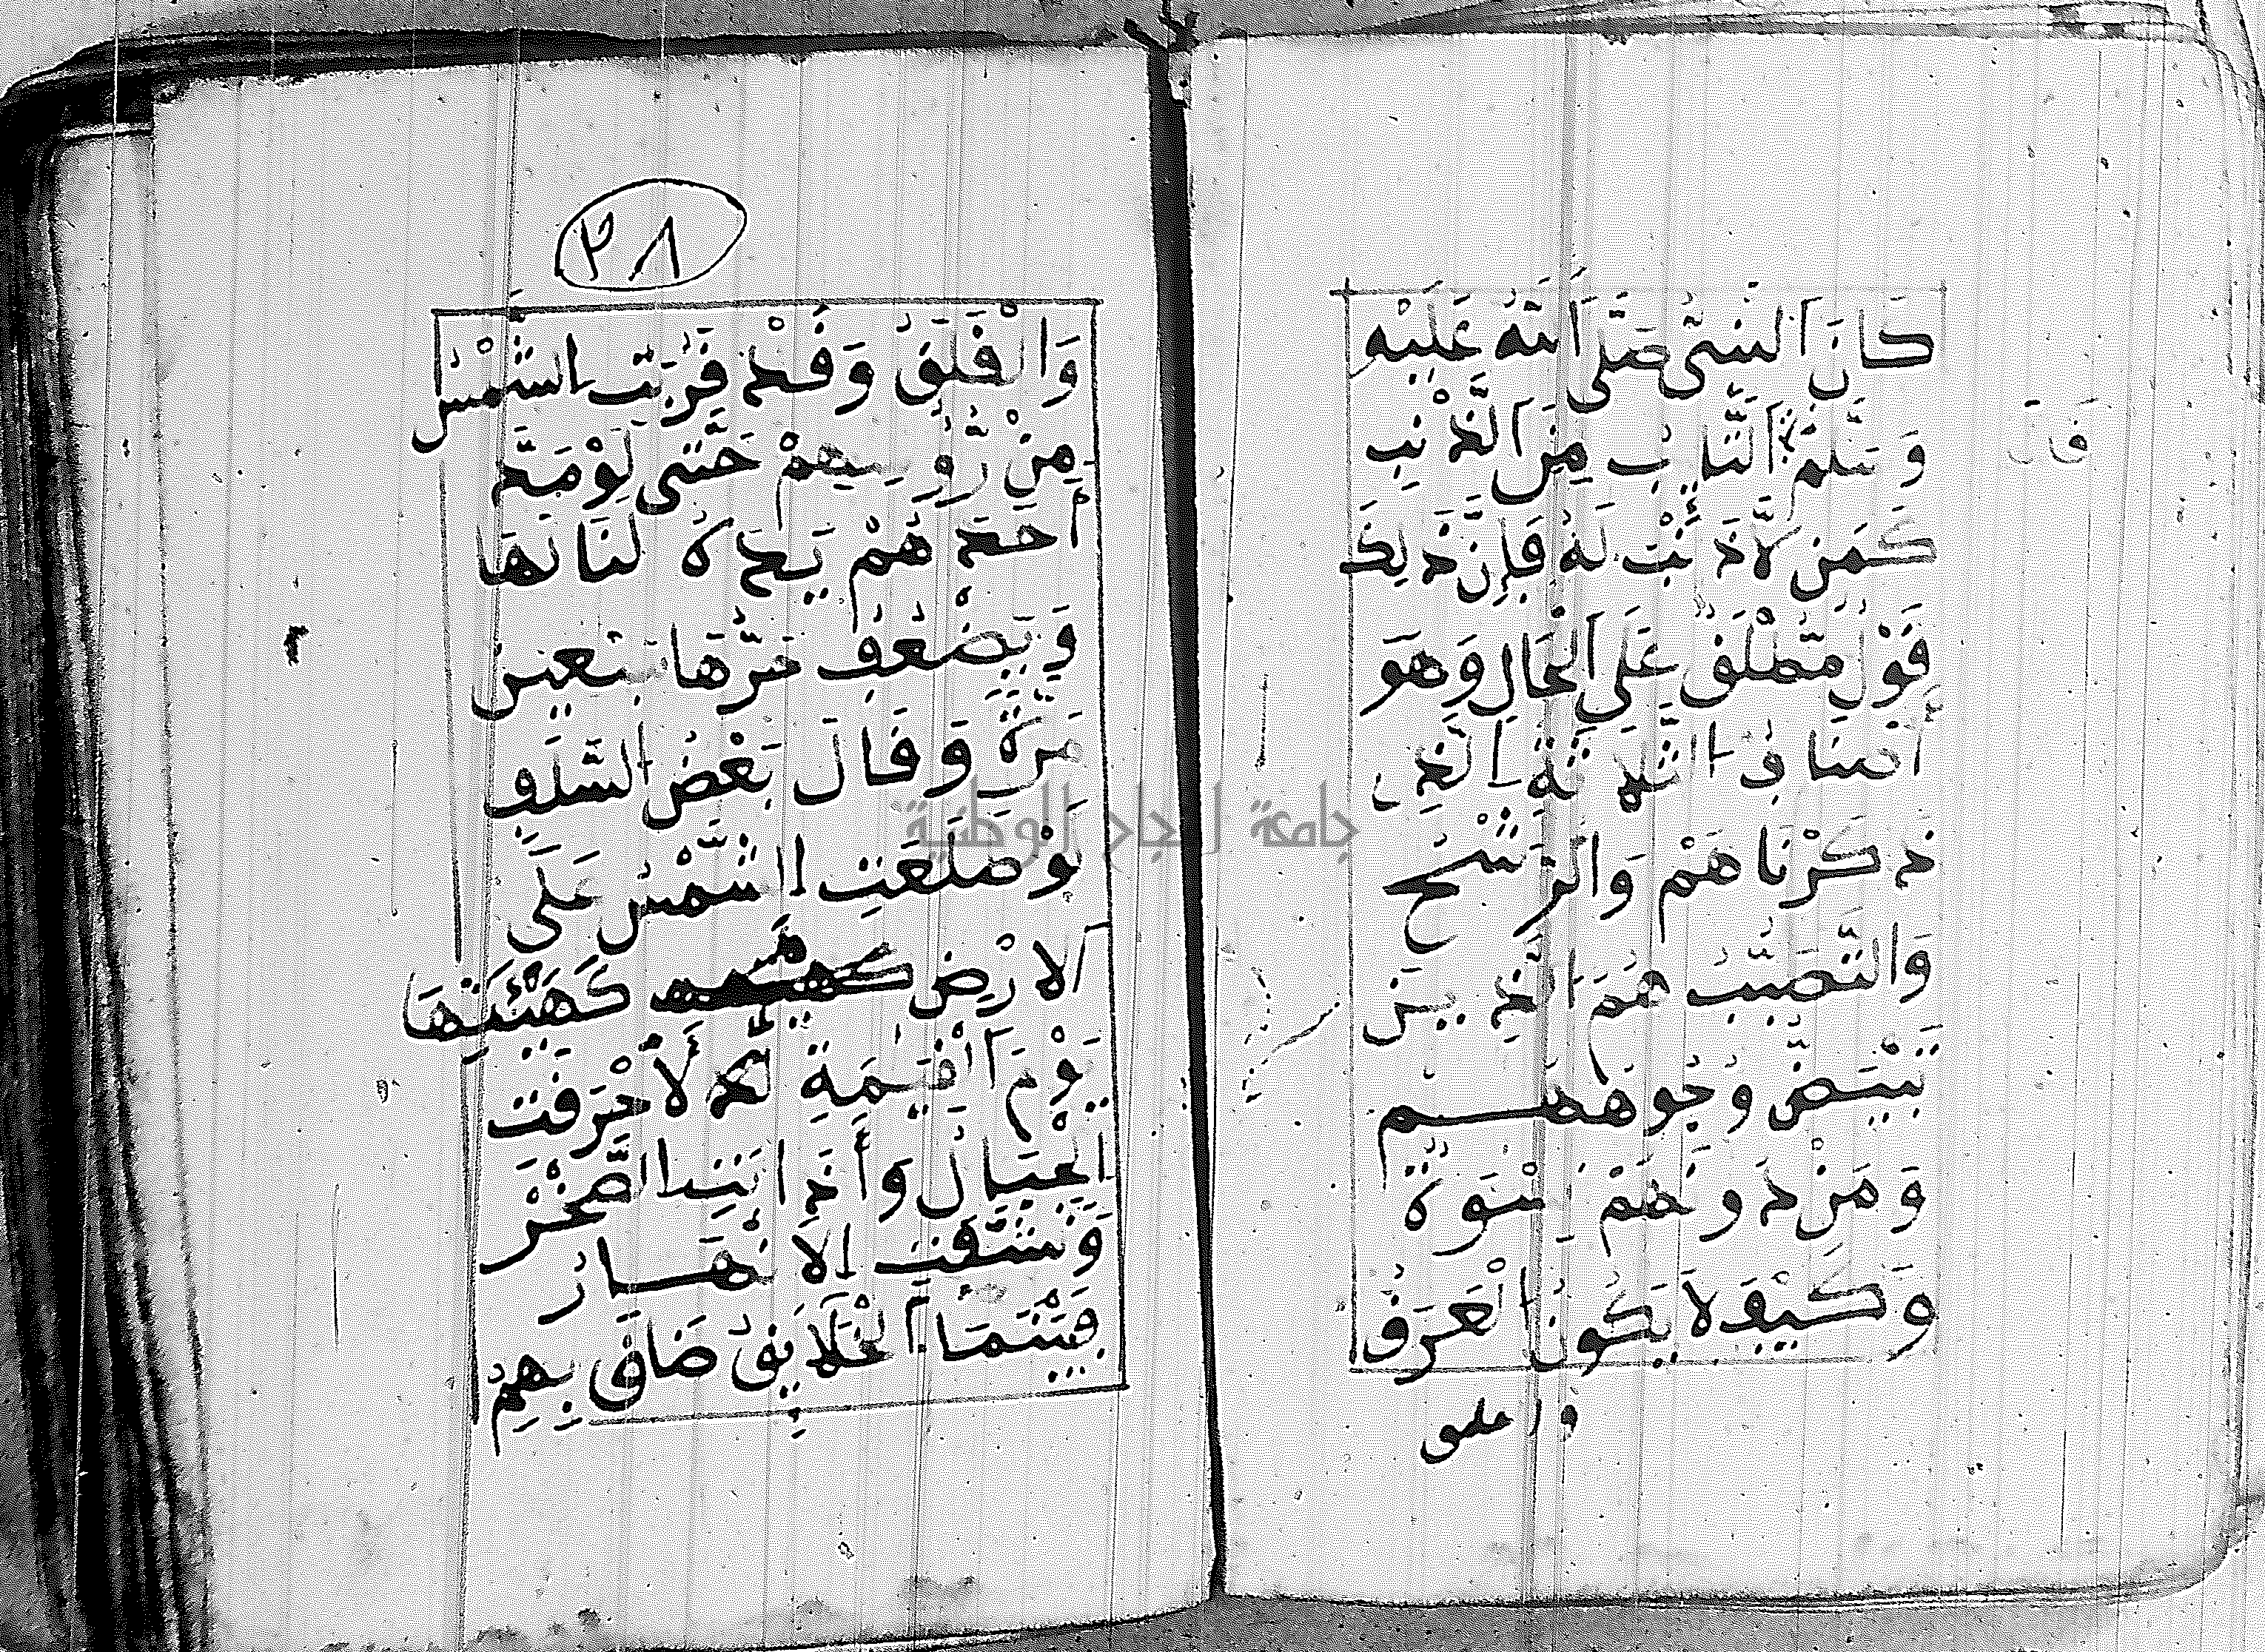 كَانَ النَّبِيُّ صَلَّى اللهُ عَلَيْهِ
وَسَلَّمَ التَّايِبُ مِنَ الذَّنْبِ
كَمَن لَّا ذَنْبَ لَهُ فَإِنَّ ذَلِكَ
قَوْلٌ مُّطْلَقٌ عَلَى الْحَالِ وَهُوَ
أصناف الثلاثة الذي
ذكَرْنَاهُمْ وَالرَّشْحُ
وَالتَّصَبُّبُ هُمُ الَّذِينَ
تَبْيَضُّ وُجُوهُهُمْ
وَمَنْ دُونَهُمْ أسْوَةٌ
وَكَيْفَ لَا يَكُونُ الْعَرَقُ
قال
٢٨
وَالْفَلَقُ وَقَدْ قَرُبَتِ الشَّمْسُ
مِنْ رُّوسِهِمْ حَتَّى لَوْ مَدَّ
أَحَدُهُمْ يَدَهُ لَنَالَهَا
وَيُضْعَفُ حَرُّهَا سَبْعِينَ
مَرَّةً وَقَالَ بَعْضُ السَّلَفِ
لَوْ طَلَعَتِ الشَّمْسُ عَلَى
الارْضِ كَهَيْئَتِهَا
يَوْمَ الْقِيَمَةِ لَأَحْرَقَتِ
الْجِبَالَ وَأَذَابَتِ الصَّخْرَ
وَنَشَّفَتِ الانْهَارَ
فَبَيْنَمَا الْخَلَايِقُ ضَاقَ بِهِمُ
جامعة النجاح الوطنية